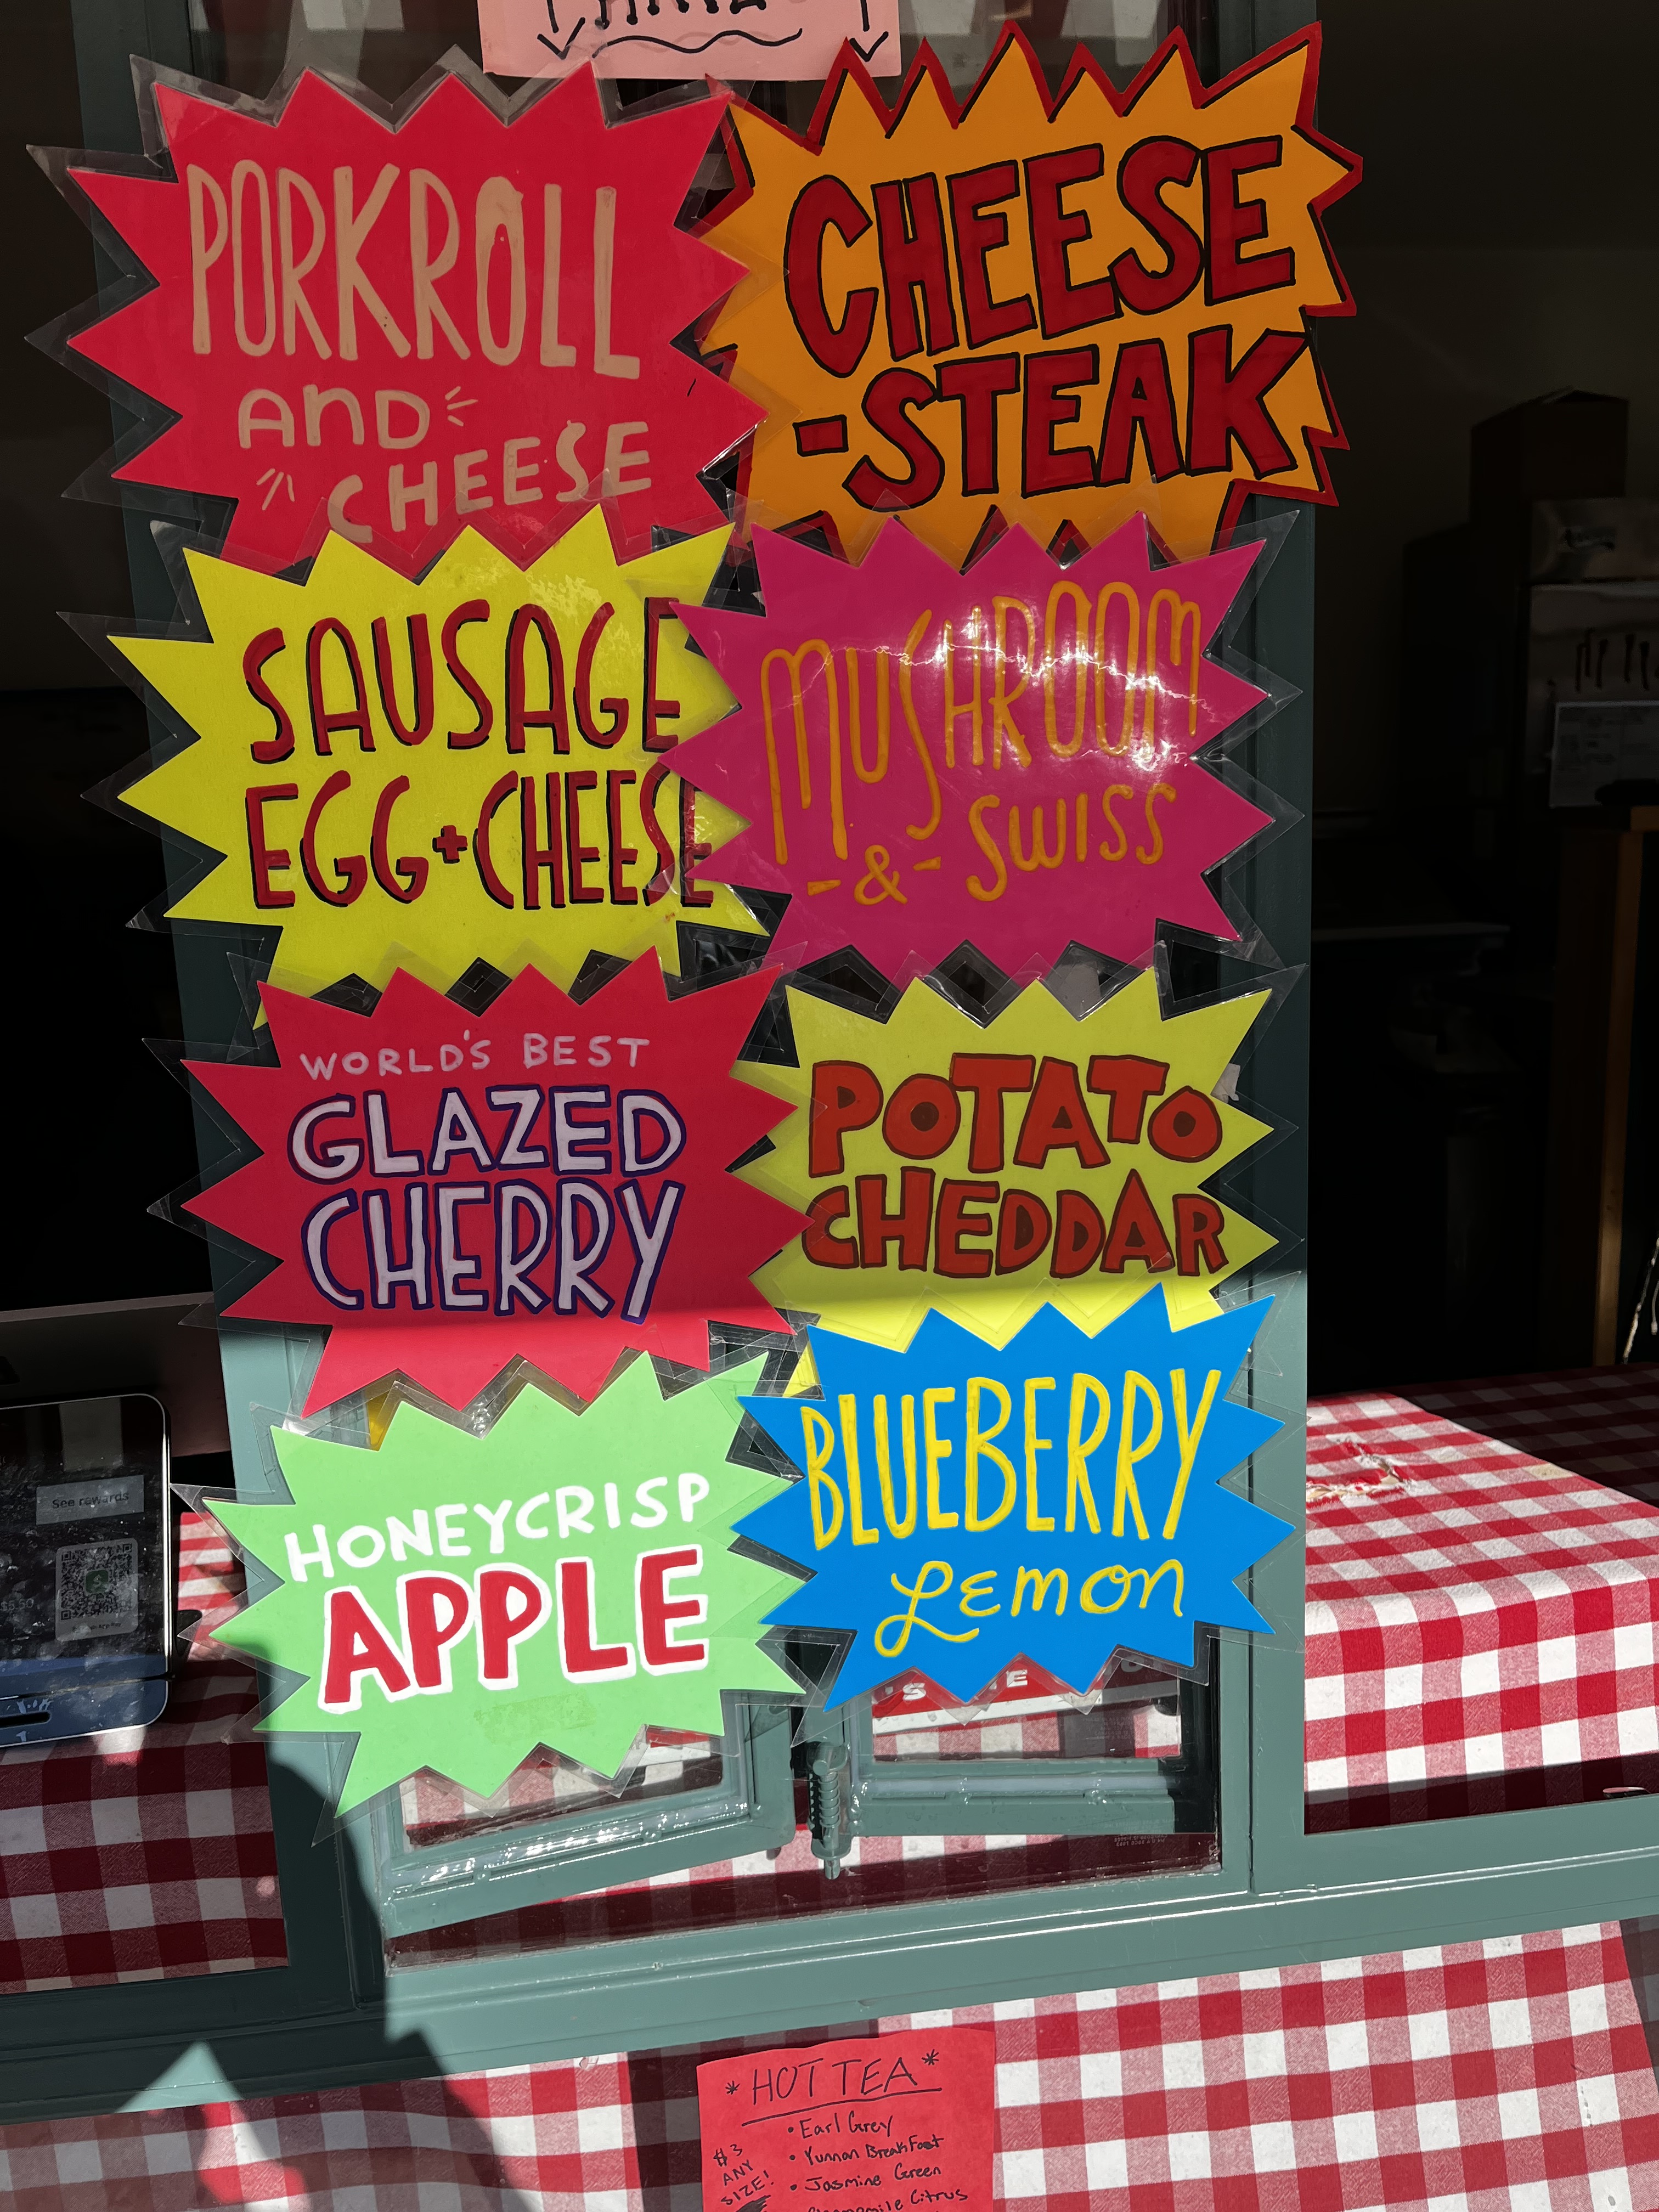 PORKROLL
AND
CHEESE
CHEESE
-STEAK
SAUSAGE
EGG+CHEESE
MUSHROOM
-&- SWISS
WORLD'S BEST
GLAZED
CHERRY
POTATO
CHEDDAR
HONEYCRISP
APPLE
BLUEBERRY
Lemon
See rewards
* HOT TEA *
• Earl Grey
• Yunnan Breakfast
• Jasmine Green
Citrus
$3
ANY
SIZE!